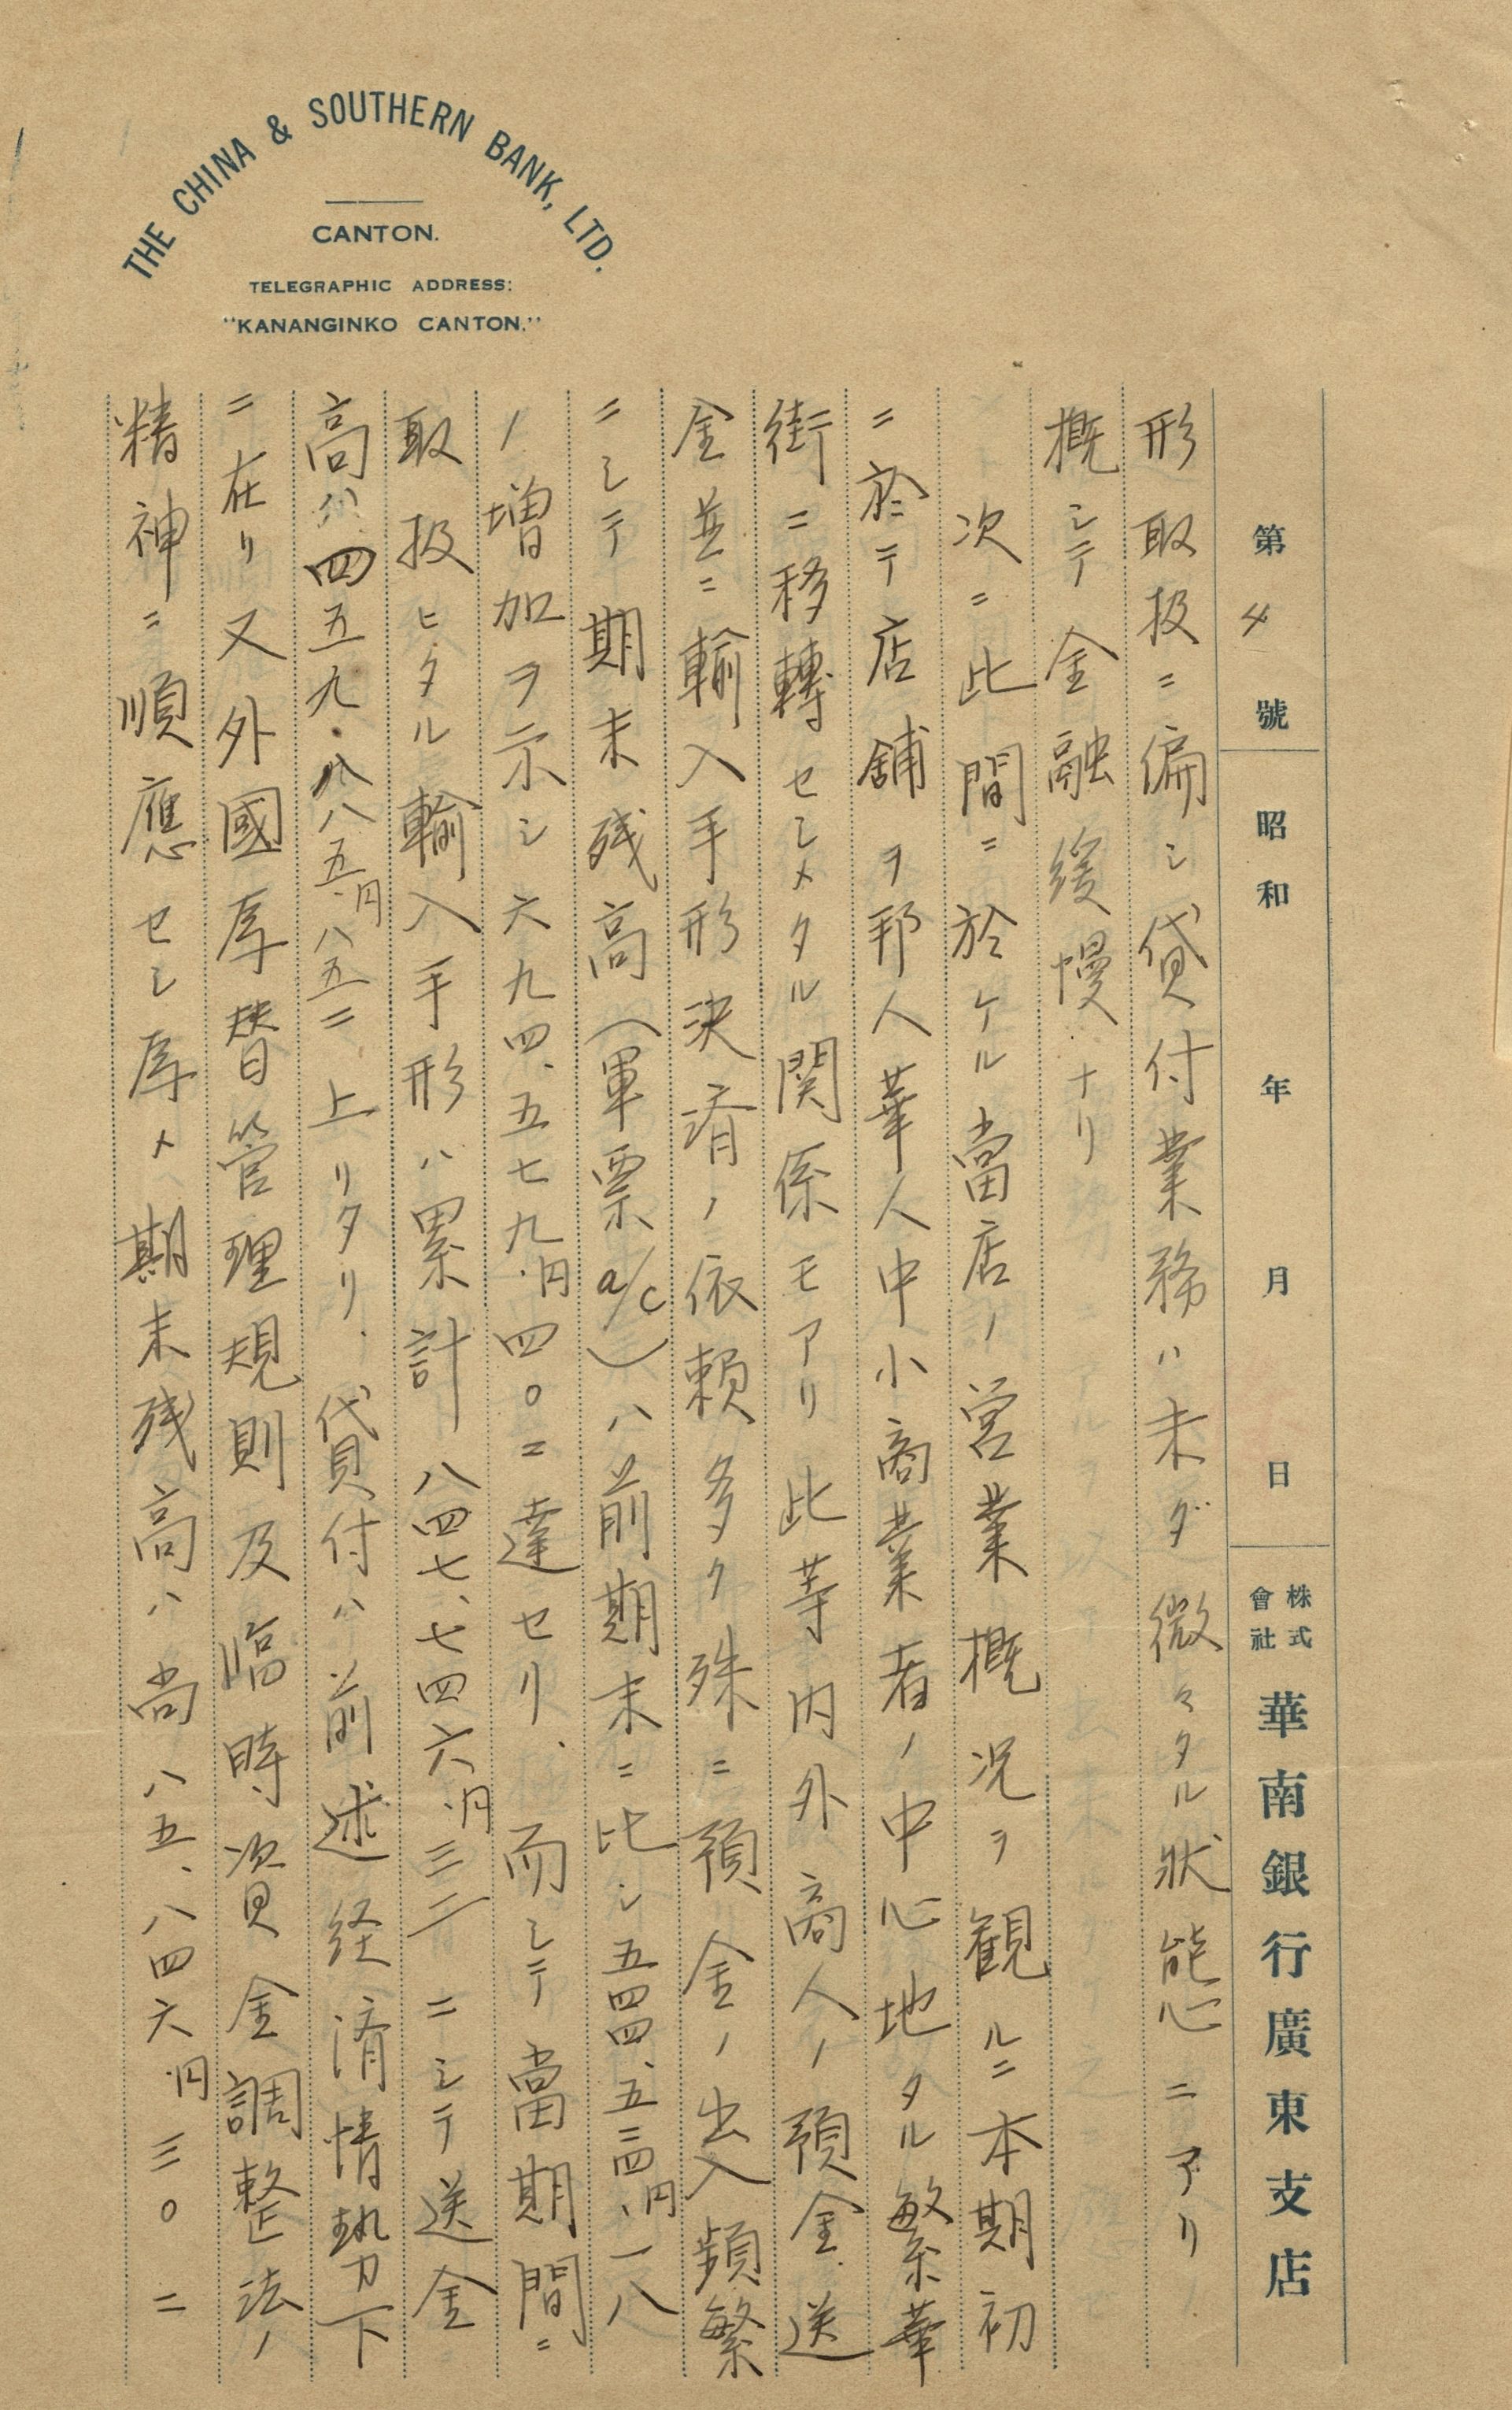 THE CHINA & SOUTHERN BANK, LTD.
CANTON.
TELEGRAPHIC ADDRESS:
"KANANGINKO CANTON."
第 4 號 昭和 年 月 日 株式會社 華南銀行廣東支店
形取扱ニ偏シ貸付業務ハ未ダ微々タル狀態ニアリ
概シテ金融緩慢ナリ
次ニ此間ニ於ケル當店ノ営業概況ヲ観ルニ本期初
ニ於テ店舗ヲ邦人華人中小商業者ノ中心地タル繁華
街ニ移轉セシメタル関係モアリ此等内外商人ノ預金送
金並ニ輸入手形決済ノ依頼多ク殊ニ預金ノ出入頻繁
ニシテ期末残高(軍票a/c)ハ前期末ニ比シ五四四、五三四.円一八
ノ増加ヲ示シ六九四、五七九.円四〇ニ達セリ、而シテ當期間ニ
取扱ヒタル輸入手形ハ累計八四七、七四六.円三二ニシテ送金
高ハ四五九.八八五.円八五ニ上リタリ、貸付ハ前述経済情勢下
ニ在リ又外國為替管理規則及臨時資金調整法ノ
精神ニ順應セシ為メ期末残高ハ尚八五、八四六.円三〇ニ